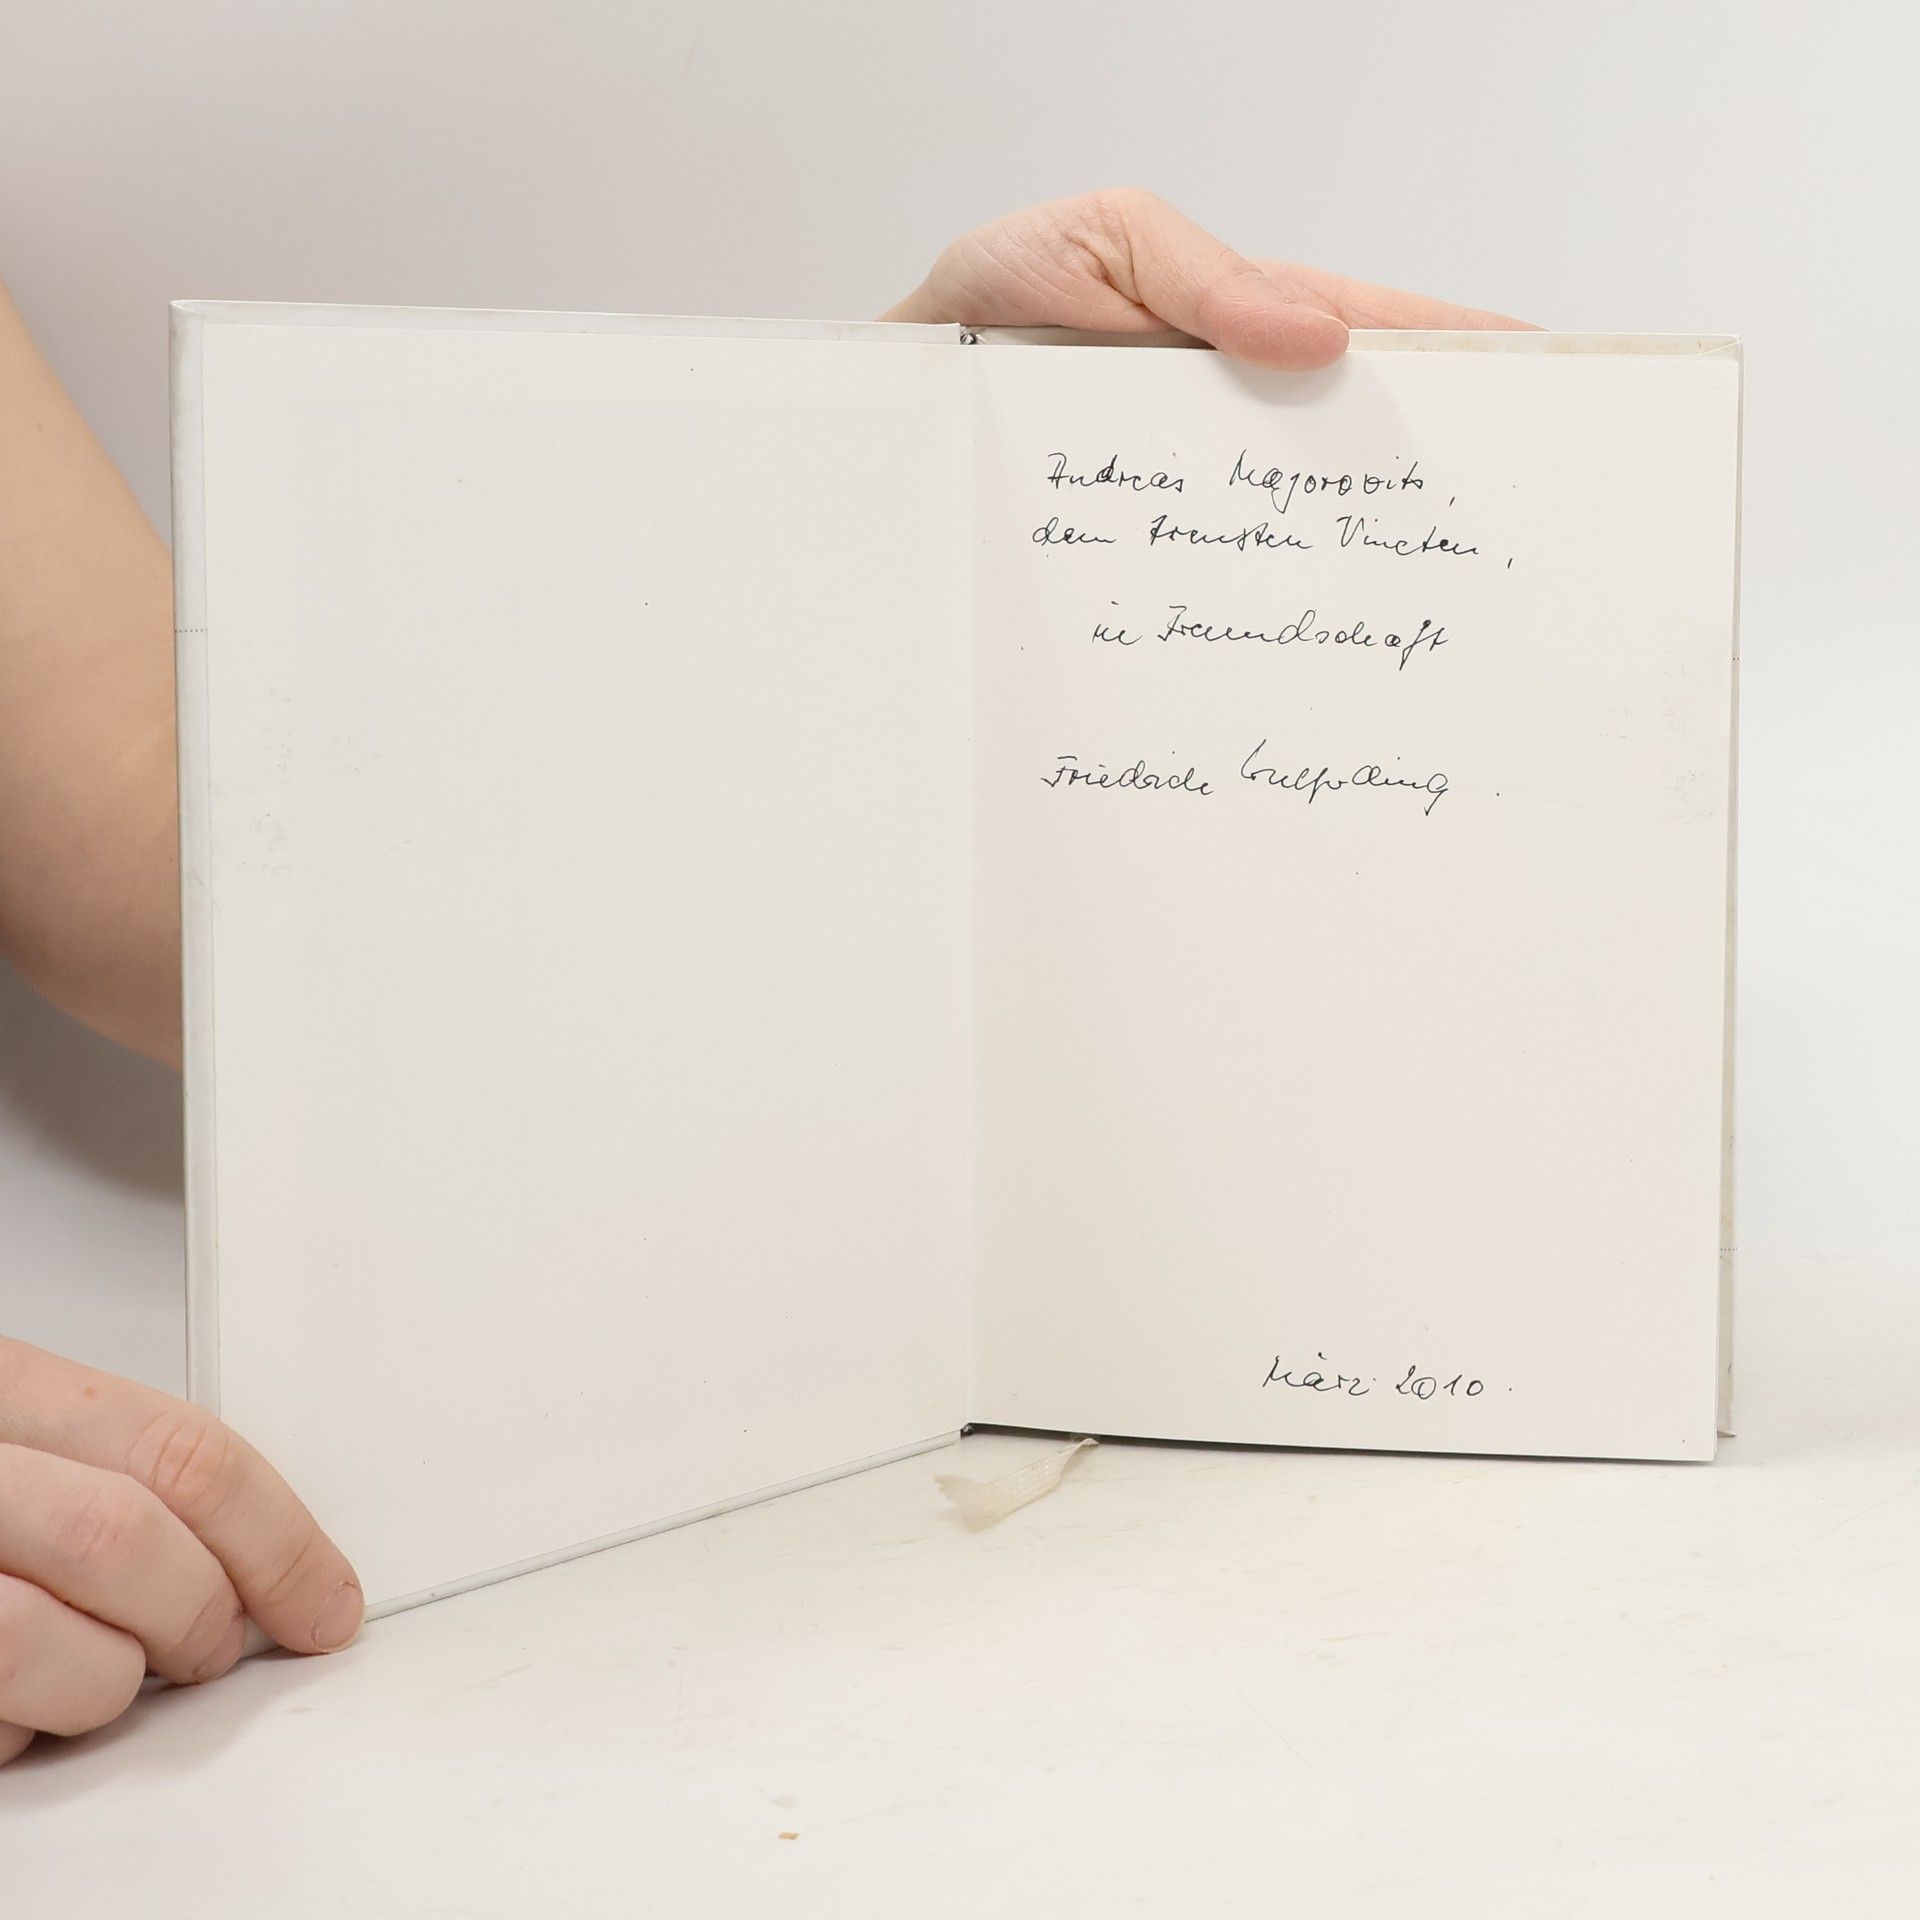 Andreas Majorovits,
dem treusten Vineten,
in Freundschaft
Friedrich
März 2010.